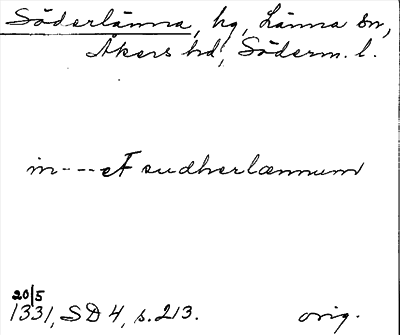 Söderlänna, hg, Länna sn,
Åkers hd, Söderm. l.
in---et sudherlænnum
20/5
1331, SD 4, s. 213. orig.